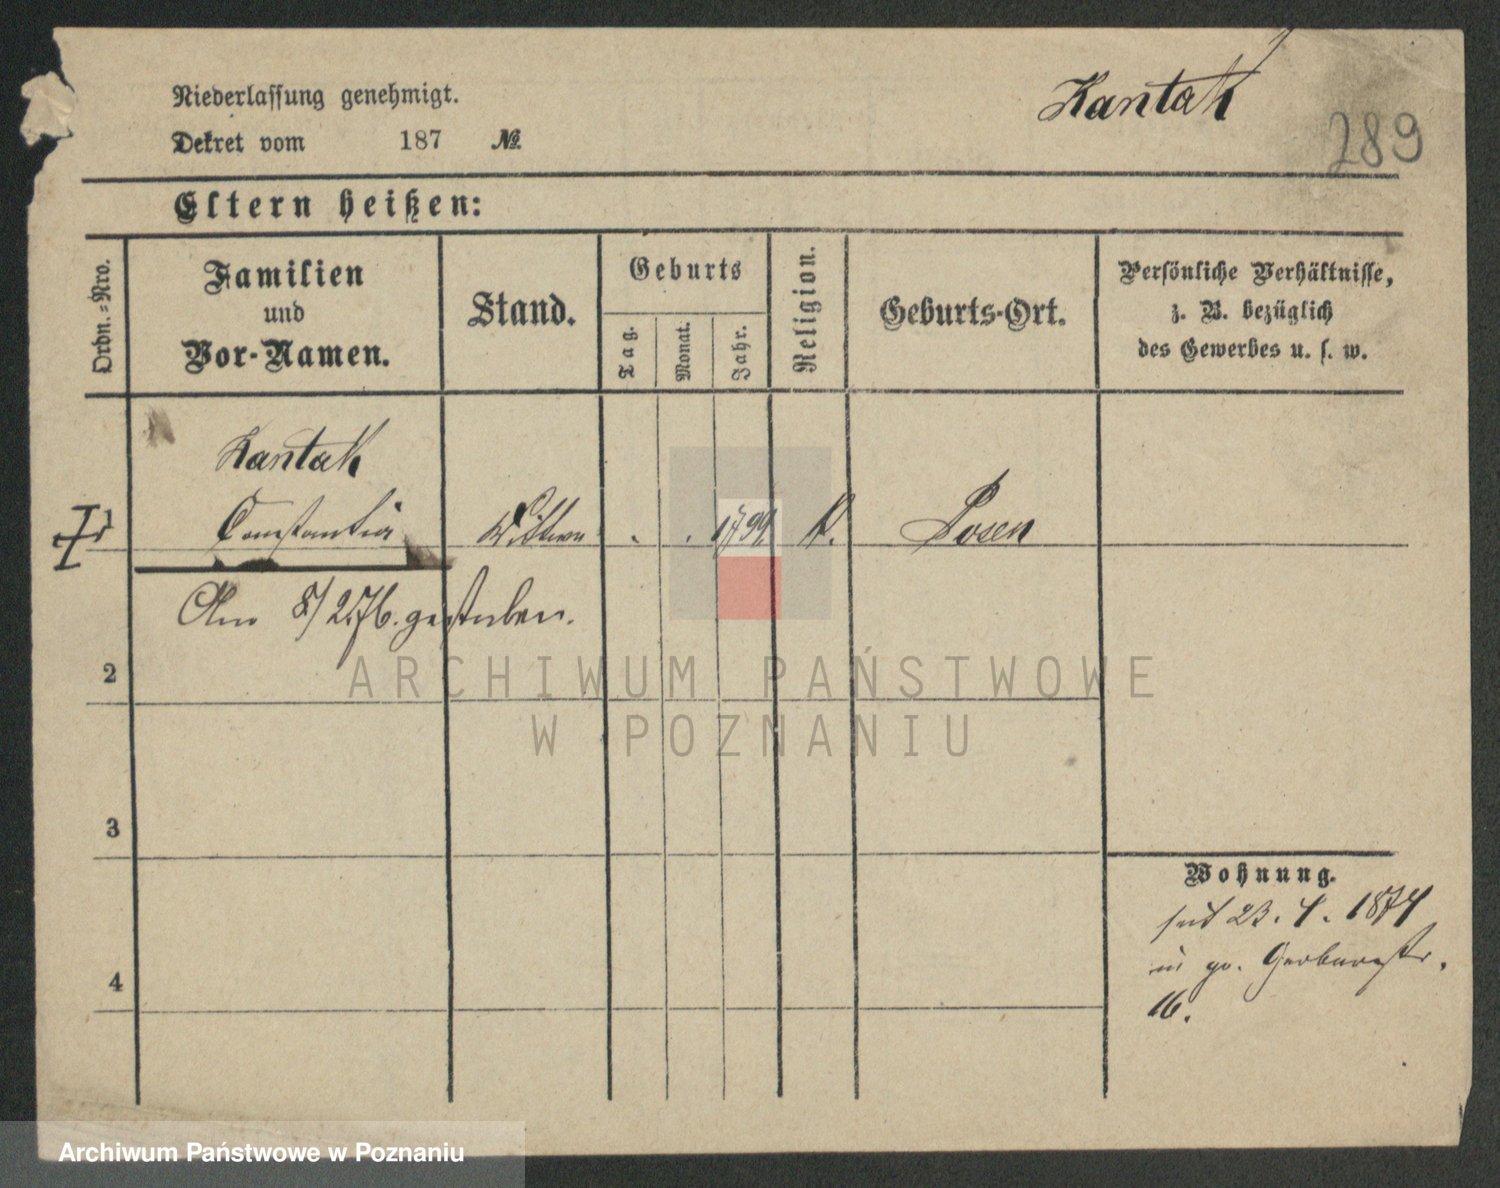 Niederlassung genehmigt.
Kantak
289
Dekret vom 187 №
Eltern heißen:
Ordn.-Nro.
Familien
und
Vor-Namen.
Stand.
Geburts
Tag.
Monat.
Jahr.
Religion.
Geburts-Ort.
Persönliche Verhältnisse,
z. B. bezüglich
des Gewerbes u. s. w.
Kantak
Constantia
Wittwe
1799
K.
Posen
Am 8/2.76. gestorben.
2
3
4
Wohnung.
seit 23. 4. 1874
in gr. Gerberstr.
16.
ARCHIWUM PAŃSTWOWE
W POZNANIU
Archiwum Państwowe w Poznaniu